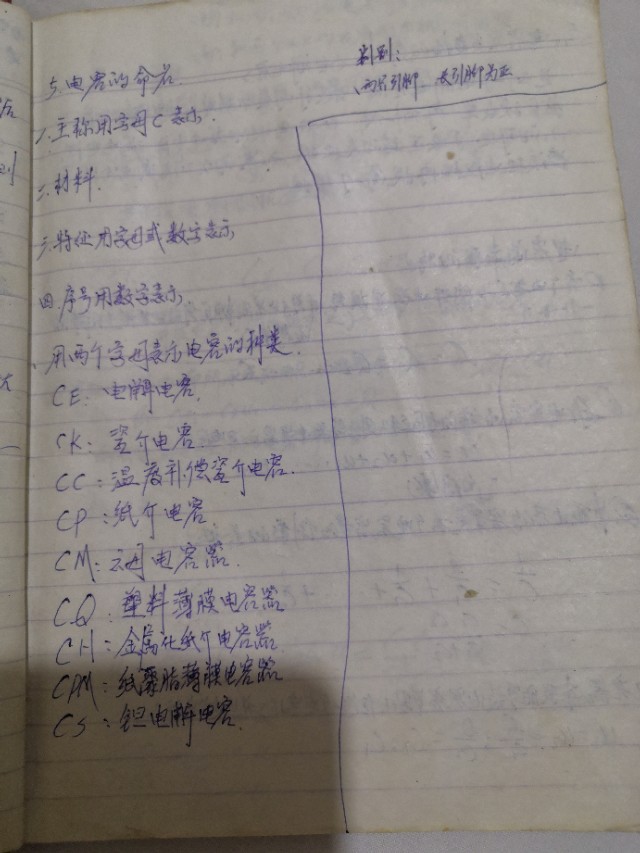 5. 电容的命名
一.主称用字母C表示.
二.材料.
三.特征用字母或数字表示.
四.序号用数字表示.
用两个字母表示电容的种类.
CE:电解电容.
CK:瓷介电容.
CC:温度补偿瓷介电容.
CP:纸介电容
CM:云母电容器.
CQ:塑料薄膜电容器
CH:金属化纸介电容器
CPM:纸聚脂薄膜电容器
CS:钽电解电容.
判别:
引脚 长引脚为正